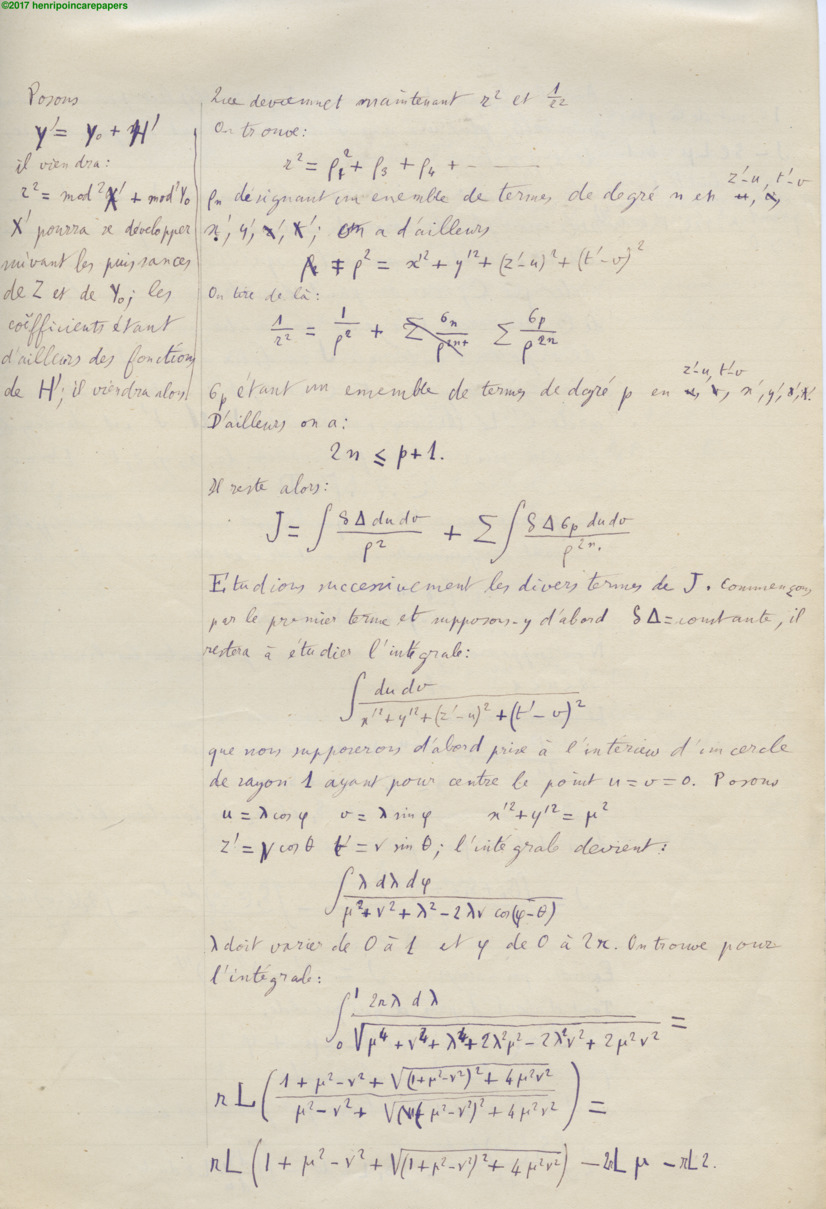 ©2017 henripoincarepapers
Posons
Y' = Y₀ + H'
il viendra:
r² = mod² X' + mod² Y₀
X' pourra se développer
suivant les puissances
de Z et de Y₀; les
coëfficients étant
d'ailleurs des fonctions
de H'; il viendra alors
Que deviennet maintenant r² et 1/r²
On trouve:
r² = ρ₂² + ρ₃ + ρ₄ + - - -
z'-u, t'-v
ρₙ désignant un enemble de termes de degré n en
x', y'; on a d'ailleurs
ρ² = x'² + y'² + (z'-u)² + (t'-v)²
On tire de là:
1/r² = 1/ρ² + Σ σₚ/ρ²ⁿ
z'-u, t'-v
σₚ étant un ensemble de termes de degré p en x', y'
D'ailleurs on a:
2n ≤ p+1.
Il reste alors:
J = ∫ δΔ du dv / ρ² + Σ ∫ δΔ σₚ du dv / ρ²ⁿ.
Etudions successivement les divers termes de J. Commençons
par le premier terme et supposons-y d'abord δΔ = constante, il
restera à étudier l'intégrale:
∫ du dv / x'² + y'² + (z'-u)² + (t'-v)²
que nous supposerons d'abord prise à l'intérieur d'un cercle
de rayon 1 ayant pour centre le point u = v = 0. Posons
u = λ cos φ v = λ sin φ x'² + y'² = μ²
z' = ν cos θ t' = ν sin θ; l'intégrale devient:
∫ λ dλ dφ / μ² + ν² + λ² - 2λν cos(φ-θ)
λ doit varier de 0 à 1 et φ de 0 à 2π. On trouve pour
l'intégrale:
∫₀¹ 2πλ dλ / √(μ⁴ + ν⁴ + λ⁴ + 2λ²μ² - 2λ²ν² + 2μ²ν²) =
π L (1 + μ² - ν² + √((1+μ²-ν²)² + 4μ²ν²) / μ² - ν² + √((μ²-ν²)² + 4μ²ν²)) =
πL (1 + μ² - ν² + √((1+μ²-ν²)² + 4μ²ν²)) - 2πL μ - πL2.